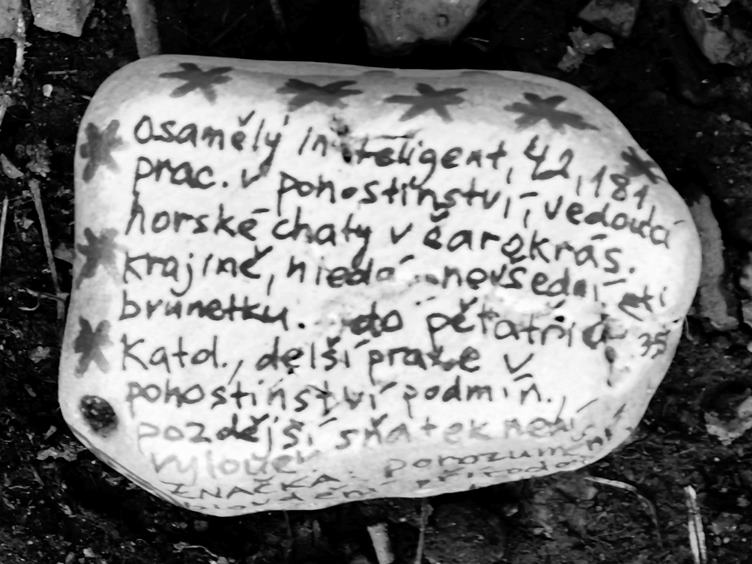 osamělý inteligent, 42, 181,
prac. v pohostinství, vedoucí
horské chaty v čarokrás.
krajině, hledá nevšední
brunetku. do pětatřiceti 35
Katol., delší praxe v
pohostinství podmín.,
pozdější sňatek není
vylouč. porozumění
ZNAČKA: přírodou